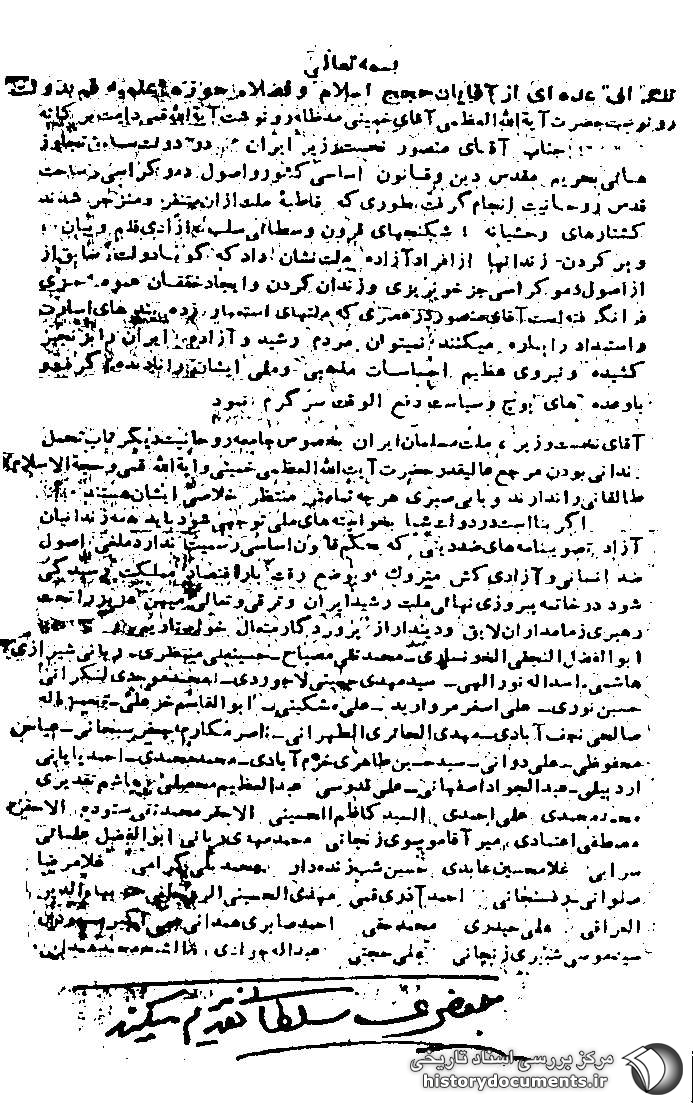 بسمه تعالی
تلگرافی عده ای از آقایان حجج اسلام و فضلاء حوزه علمیه قم بدولت
رونوشت حضرت آیة الله العظمی آقای خمینی مدظله رونوشت آیة الله قمی دامت برکاته
جناب آقای منصور نخست وزیر ایران در دولت سابق تجاوز
هائی بحریم مقدس دین و قانون اساسی کشور و اصول دموکراسی و ساحت
قدس روحانیت انجام گرفت بطوری که قاطبهٔ ملت از آن متنفر و منزجر شدند
کشتارهای وحشیانه ؛ شکنجهای قرون وسطائی سلب آزادی قلم و بیان ؛
و پر کردن زندانها از افراد آزاده ملت نشان داد که گویا دولت سابق از
از اصول دموکراسی جز خونریزی و زندان کردن و ایجاد خفقان عمومی چیزی
فرا نگرفته است آقای منصور در عصری که ملتهای استعمار زده بندهای اسارت
و استبداد را پاره میکنند نمیتوان مردم رشید و آزاده ایران را بزنجیر
کشیده و نیروی عظیم احساسات مذهبی و ملی ایشان را نادیده گرفت و
با وعده های پوچ و سیاست دفع الوقت سرگرم نمود
آقای نخست وزیر ، ملت مسلمان ایران بخصوص جامعه روحانیت دیگر تاب تحمل
زندانی بودن مرجع عالیقدر حضرت آیت الله العظمی خمینی و آیة الله قمی و حجة الاسلام آقای
طالقانی را ندارند و با بی صبری هر چه تمامتر منتظر خلاصی ایشان هستند
اگر بنا است در دولت شما بخواسته های ملی توجهی شود باید همه زندانیان
آزاد تصویبنامه های ضد دینی که بحکم قانون اساسی رسمیت ندارد ملغی اصول
ضد انسانی و آزادی کش متروک و بوضع رقت بار اقتصاد مملکت رسیدگی
شود در خاتمه پیروزی نهائی ملت رشید ایران و ترقی و تعالی میهن عزیز را تحت
رهبری زمامداران لایق و دیندار از پروردگار متعال خواستاریم
ابوالفضل النجفی الخونساری ـ محمد تقی مصباح ـ حسینعلی منتظری ـ ربانی شیرازی
هاشمی ـ اسداله نورالهی ـ سید مهدی حسینی لاجوردی ـ محمد موحدی لنکرانی
حسین نوری ـ علی اصغر مروارید ـ علی مشکینی ـ ابوالقاسم خزعلی ـ نعمت اله
صالحی نجف آبادی ـ مهدی الحائری الطهرانی ـ ناصر مکارم ـ جعفر سبحانی ـ عباس
محفوظی ـ علی دوانی ـ سید حسین طاهری خرم آبادی ـ محمد محمدی ـ احمد پایانی
اردبیلی ـ عبدالجواد اصفهانی ـ علی قدوسی عبدالعظیم محصلی هاشم تقدیری
محمد محمدی علی احمدی السید کاظم الحسینی الاحقر محمد تقی ستوده الاحقر
مصطفی اعتمادی ـ میر آقا موسوی زنجانی محمد مهدی ربانی ابوالفضل علمائی
سرابی غلامحسین عابدی حسین شب زنده دار محمد علی گرامی غلامرضا
صلواتی رفسنجانی احمد آذری قمی مهدی الحسینی الروحانی
العراقی علی حیدری محمد حقی احمد صابری همدانی
سید موسی شبیری زنجانی علی حجتی عبداله جوادی
سلطا تقدیم میکنند
مرکز بررسی اسناد تاریخی
historydocuments.ir